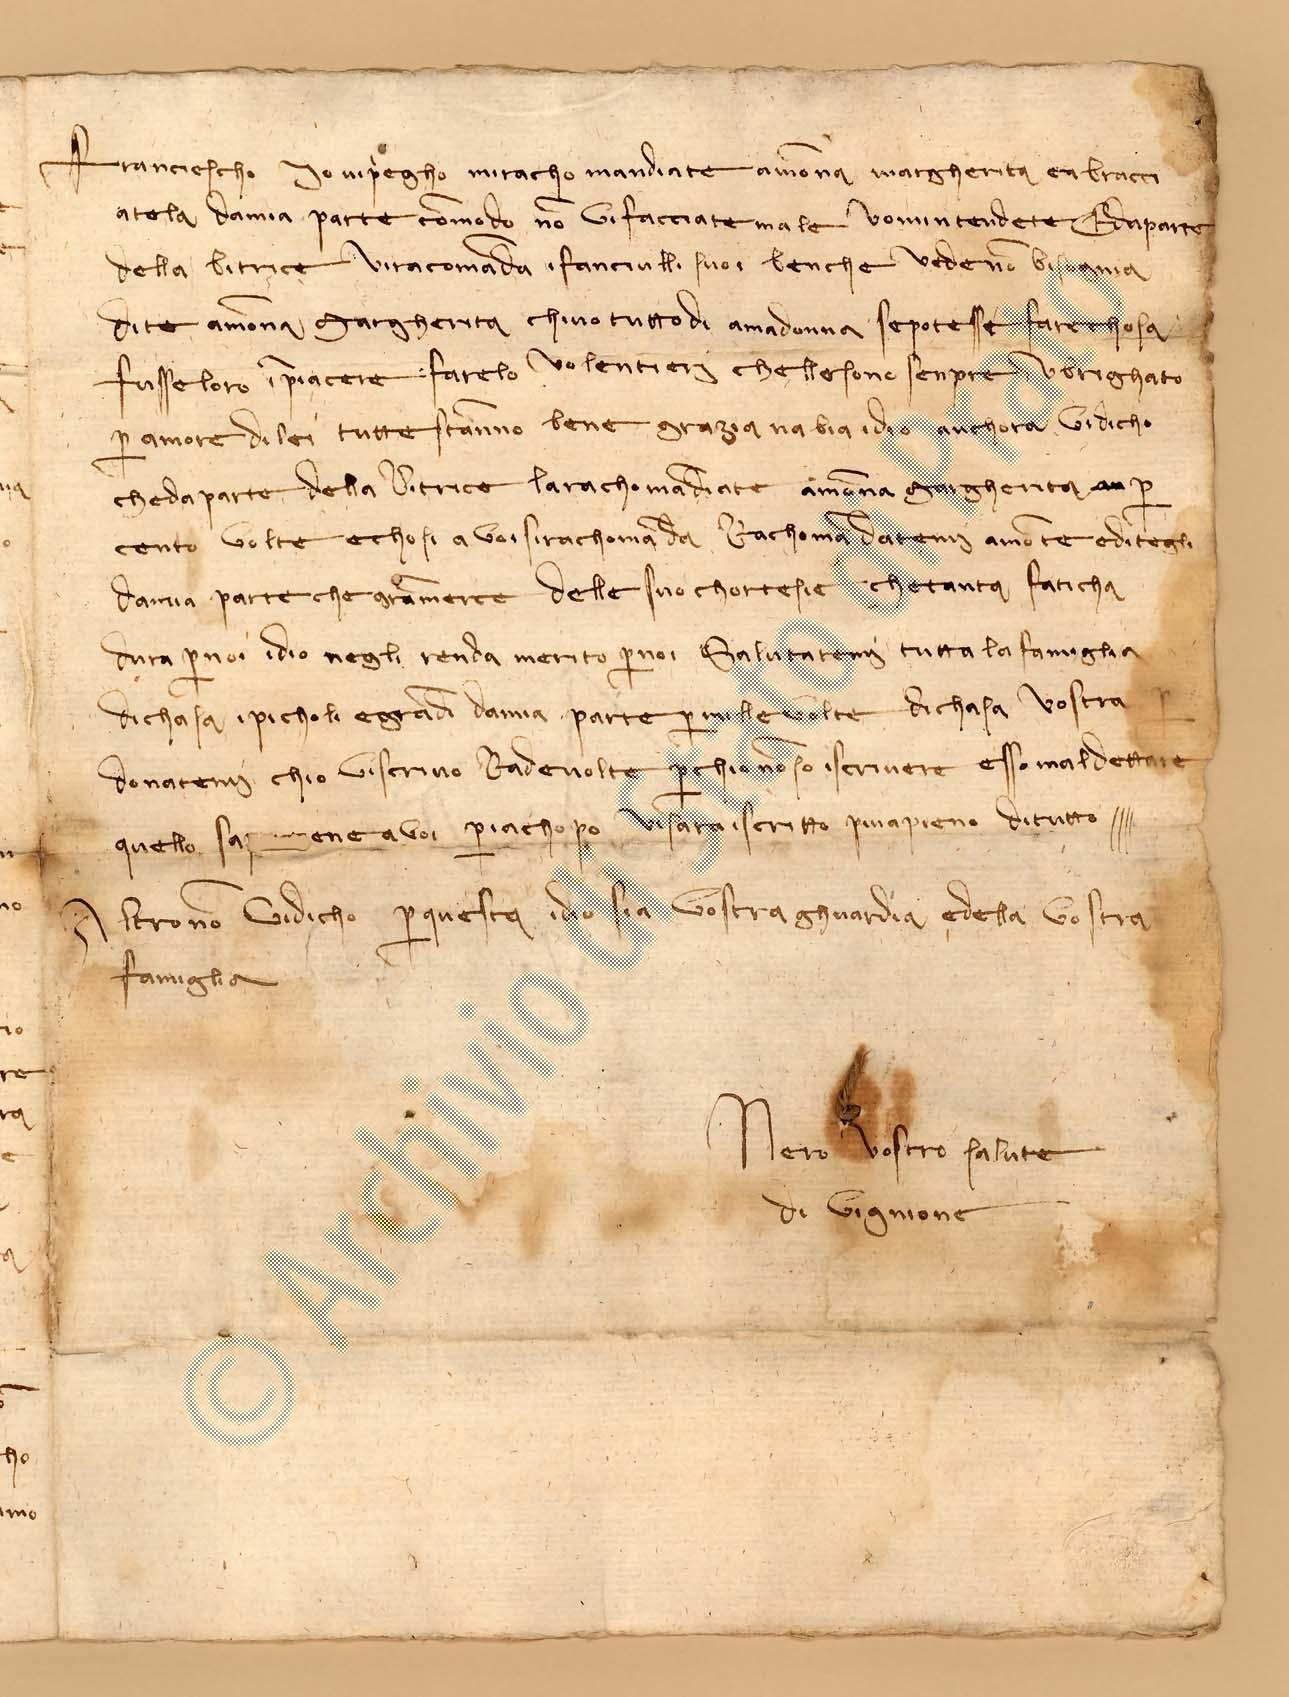 Franciescho Io vi priegho mi rachomandiate a mona margherita e abracci
atela da mia parte e in modo non vi facciate male vo mi intendete E da parte
della bitrice vi racomanda i fanciulli suoi benche vede non bisognia
dite a mona Margherita ch io tutto di a madonna se potesse fare chosa
fusse loro in piacere farelo volentieri che lle sono senpre ubrighato
per amore di lei tutte stanno bene grazia n abia idio anchora vi dicho
che da parte della Bitrice la rachomandiate a mona Margherita per
cento volte e chosi a voi si rachomanda Rachomandatemi a monte e ditegli
da mia parte che gran merce delle suo chortesie che tanta faticha
dura per noi idio negli renda merito per noi Salutatemi tutta la famiglia
di chasa i picholi e grandi da mia parte per mille volte di chasa vostra per
donatemi ch io vi scrivo Rade volte perch io non so iscrivere e sso mal dettare
quello a voi per iachopo vi sara iscritto piu a pieno di tutto
Altro non vi dicho per questa idio sia vostra ghuardia e della vostra
famiglia
Nero vostro salute
di vignione
© Archivio di Stato di Prato